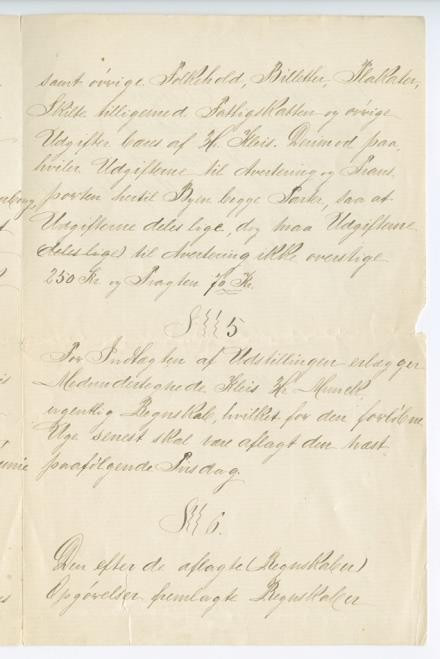 samt øvrige Folkehold, Billetter, Plakater,
Skilte tilligemed Fattigskatten og øvrige
Udgifter bæres af H. Kleis. Derimod paa
hviler Udgifterne til Avertering og Trans
porten hertil Byen begge Parter, saa at
Udgifterne deles lige, dog maa Udgifterne
(deles lige) til Avertering ikke overstige
250 Kr. og Fragten 70 Kr.
§ 5
For Indtægten af Udstillingen erlægger
Medundertegnede Kleis Hr. Munck,
ugentlig Regnskab, hvilket for den forløbne
Uge senest skal være aflagt den næst
paafølgende Tirsdag.
§ 6.
Den efter de aflagte (Regnskaber)
Opgørelser fremlagte Regnskaber